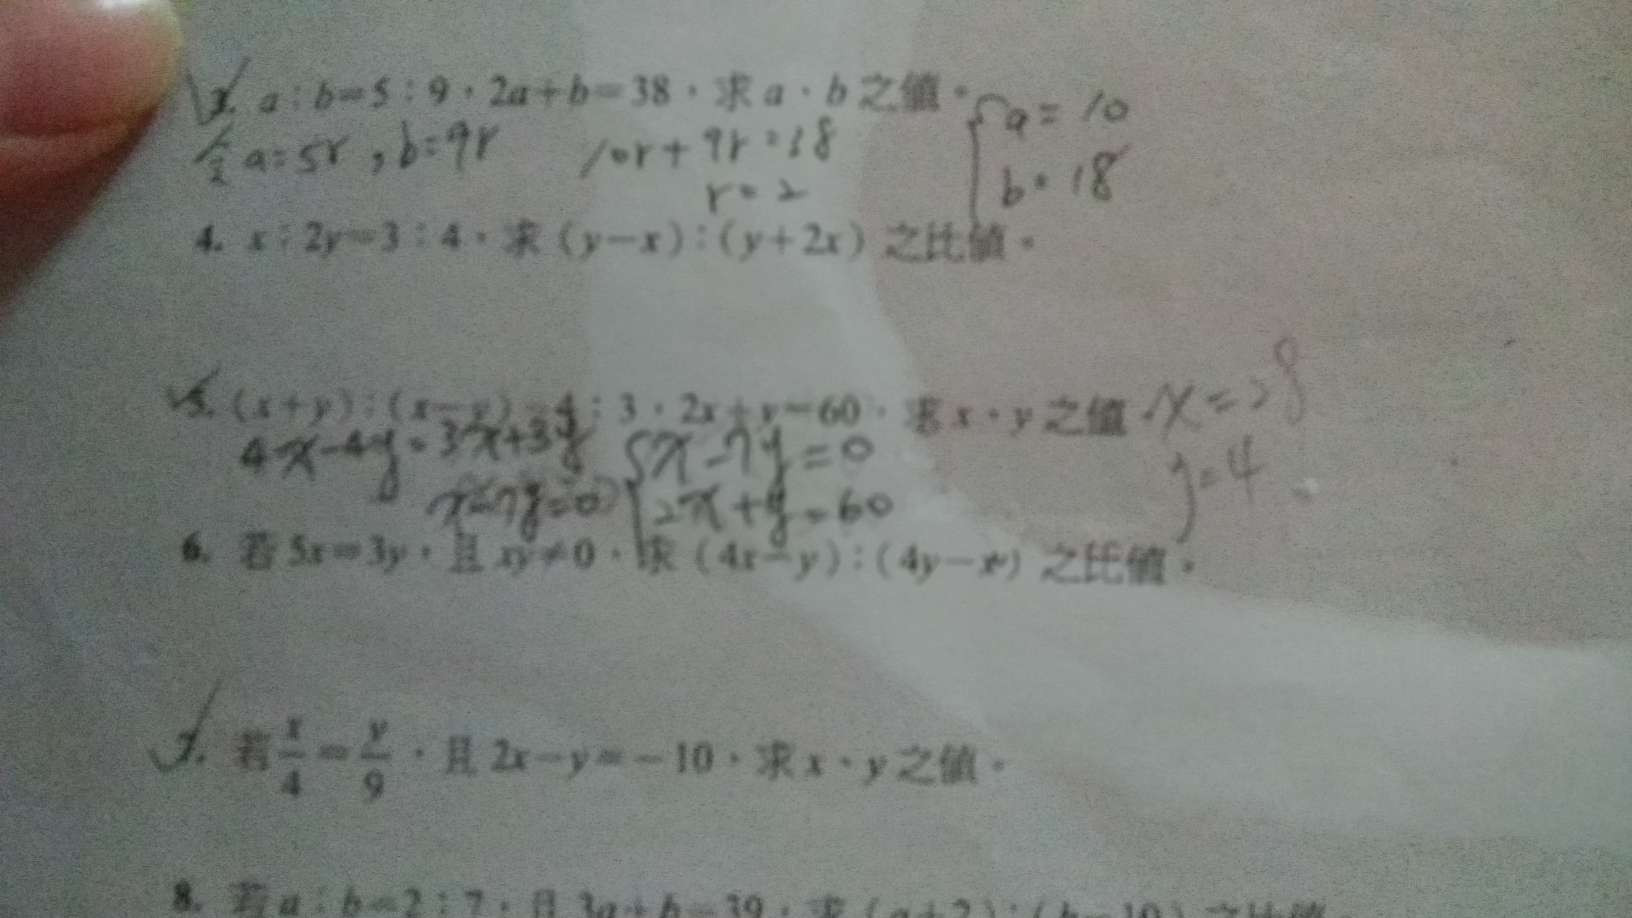 3. a:b=5:9，2a+b=38，求 a、b 之值。
a=5r , b=9r 10r+9r=18
r=2
{a=10
b=18
4. x:2y=3:4，求 (y-x):(y+2x) 之比值。
5. (x+y):(x-y)=4:3，2x+y=60，求 x、y 之值。
4x-4y=3x+3y
x-7y=0
{x-7y=0
2x+y=60
x=28
y=4
6. 若 5x=3y，且 xy≠0，求 (4x-y):(4y-x) 之比值。
7. 若 x/4=y/9，且 2x-y=-10，求 x、y 之值。
8. 若 a:b=2:7，且 3a+b=39，求 (a+2):(b-10) 之比值。